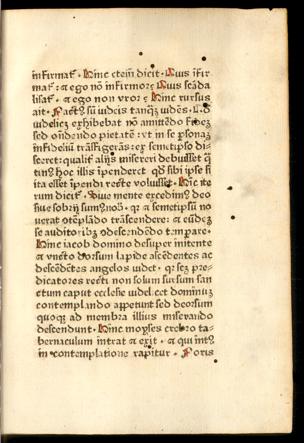 infirmat̄ . Hinc etem̄ dicit . Quis īfir
mat̄ . ⁊ ego nō infirmor? Quis scāda
lisat̄ . ⁊ ego non vror? Hinc rursus
ait . Fact⁹ sū iudeis tanqȝ iudeus .
videlicȝ exhibebat nō amittēdo fideȝ
sed oñdendo pietatē : vt in se ꝑsonaȝ
infideliū trāsfigerās : ex semetipso di-
sceret : qualit̄ alijs misereri debuisset
hoc illis īpenderet qd̄ sibi ipse si
ita esset īpendi recte voluisset . Hinc ite
rum dicit . Siue mente excedim⁹ deo
siue sobrij sum⁹ . qr ⁊ semetipsū no
uerat cōtēplādo trāscendere : ⁊ eūdeȝ
se auditorib⁹ cōdescendēdo temꝑare .
Hinc iacob domino desuper initente
⁊ vncto deorsum lapide ascēdentes ac
descēdētes angelos videt . qr scȝ pre-
dicatores recti non solum sursum san
ctum caput ecclesie videlicet dominuȝ
contemplando appetunt sed deorsum
quoqȝ ad membra illius miserando
descendunt . Hinc moyses crebro ta-
bernaculum intrat ⁊ exit . ⁊ qui int⁹
in contemplatione rapitur . Foris